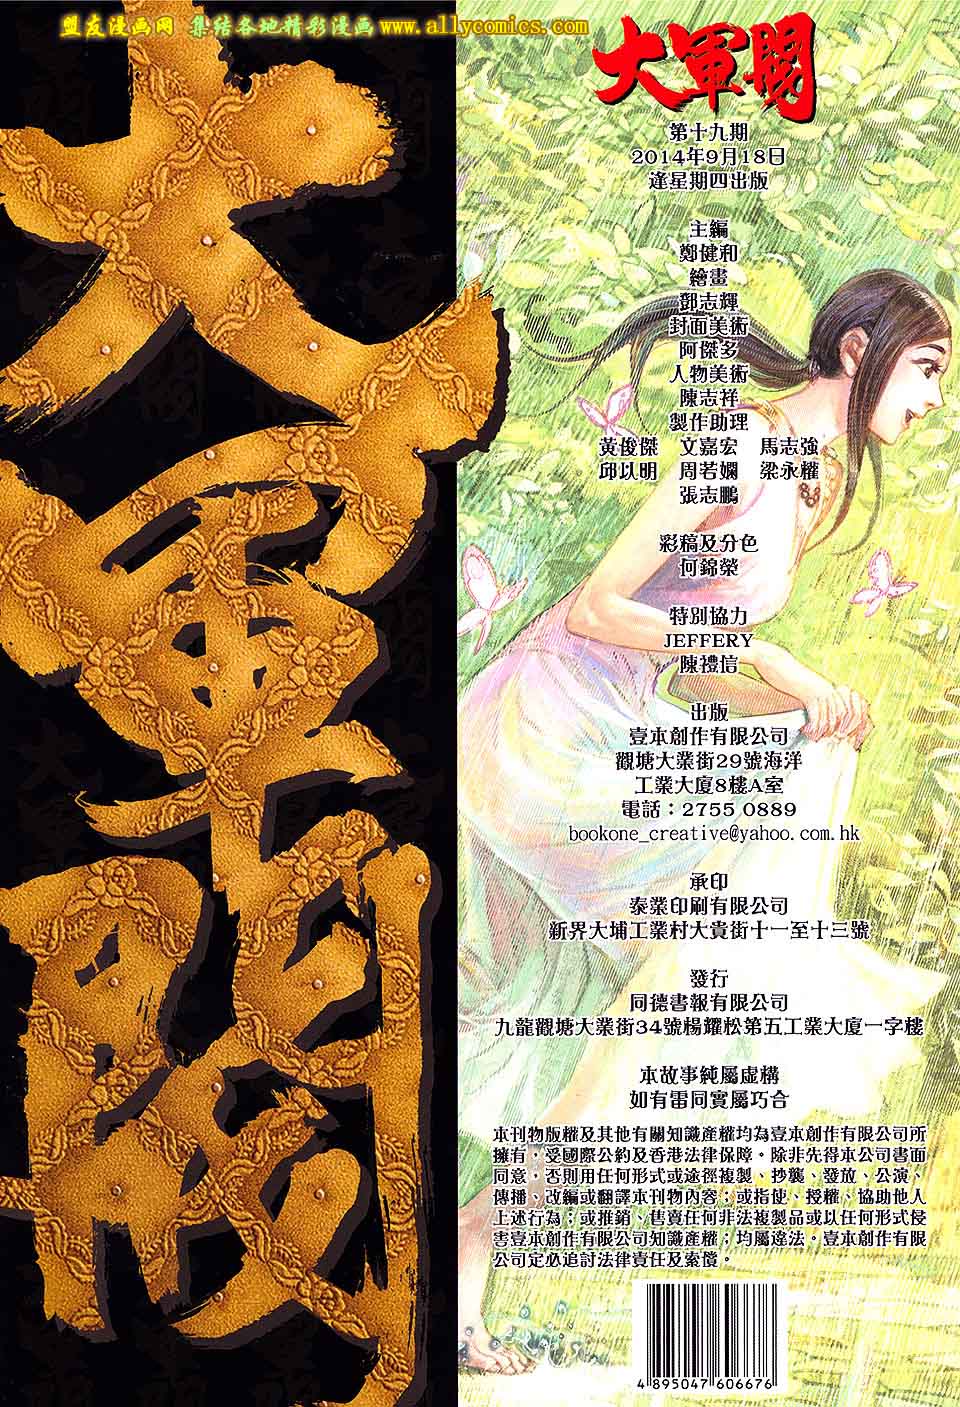 盟友漫画网 集结各地精彩漫画 www.allycomics.com
大軍閥
大軍閥
第十九期
2014年9月18日
逢星期四出版
主編
鄭健和
繪畫
鄧志輝
封面美術
阿傑多
人物美術
陳志祥
製作助理
黃俊傑 文嘉宏 馬志強
邱以明 周若嫻 梁永權
張志鵬
彩稿及分色
何錦榮
特別協力
JEFFERY
陳禮信
出版
壹本創作有限公司
觀塘大業街29號海洋
工業大廈8樓A室
電話：2755 0889
bookone_creative@yahoo.com.hk
承印
泰業印刷有限公司
新界大埔工業村大貴街十一至十三號
發行
同德書報有限公司
九龍觀塘大業街34號楊耀松第五工業大廈一字樓
本故事純屬虛構
如有雷同實屬巧合
本刊物版權及其他有關知識產權均為壹本創作有限公司所
擁有，受國際公約及香港法律保障。除非先得本公司書面
同意，否則用任何形式或途徑複製、抄襲、發放、公演、
傳播、改編或翻譯本刊物內容；或指使、授權、協助他人
上述行為；或推銷、售賣任何非法複製品或以任何形式侵
害壹本創作有限公司知識產權；均屬違法。壹本創作有限
公司定必追討法律責任及索償。
4 895047 606676